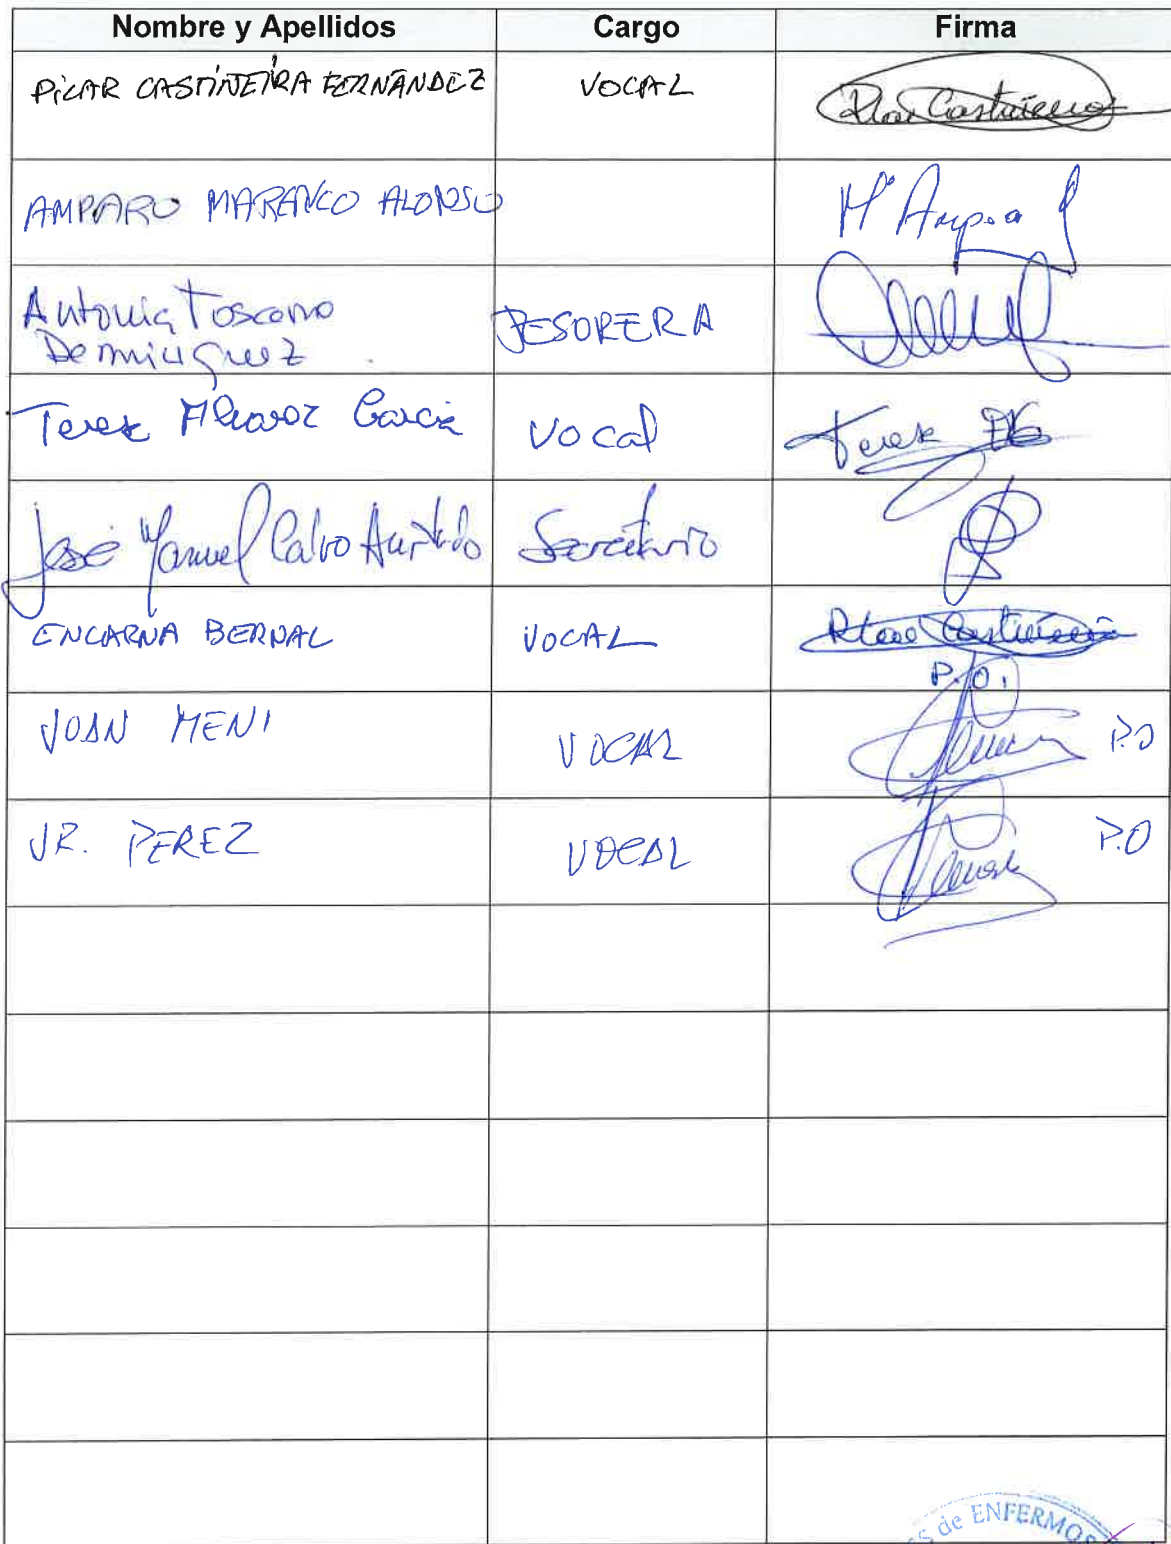 Nombre y Apellidos Cargo Firma
PILAR CASTIÑEIRA FERNÁNDEZ VOCAL Pilar Castiñeira
AMPARO MARENCO ALONSO Mª Amparo
Antonia Toscano TESORERA
Dominguez
Teresa Alvarez Garcia Vocal Teresa
José Manuel Calvo Hurtado Secretario
ENCARNA BERNAL VOCAL Pilar Castiñeira
P.O.
JOAN MENI VOCAL P.O
JR. PEREZ VOCAL P.O
de ENFERMOS